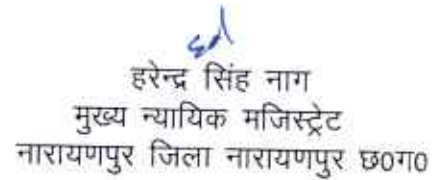 हरेन्द्र सिंह नाग
मुख्य न्यायिक मजिस्ट्रेट
नारायणपुर जिला नारायणपुर छ0ग0